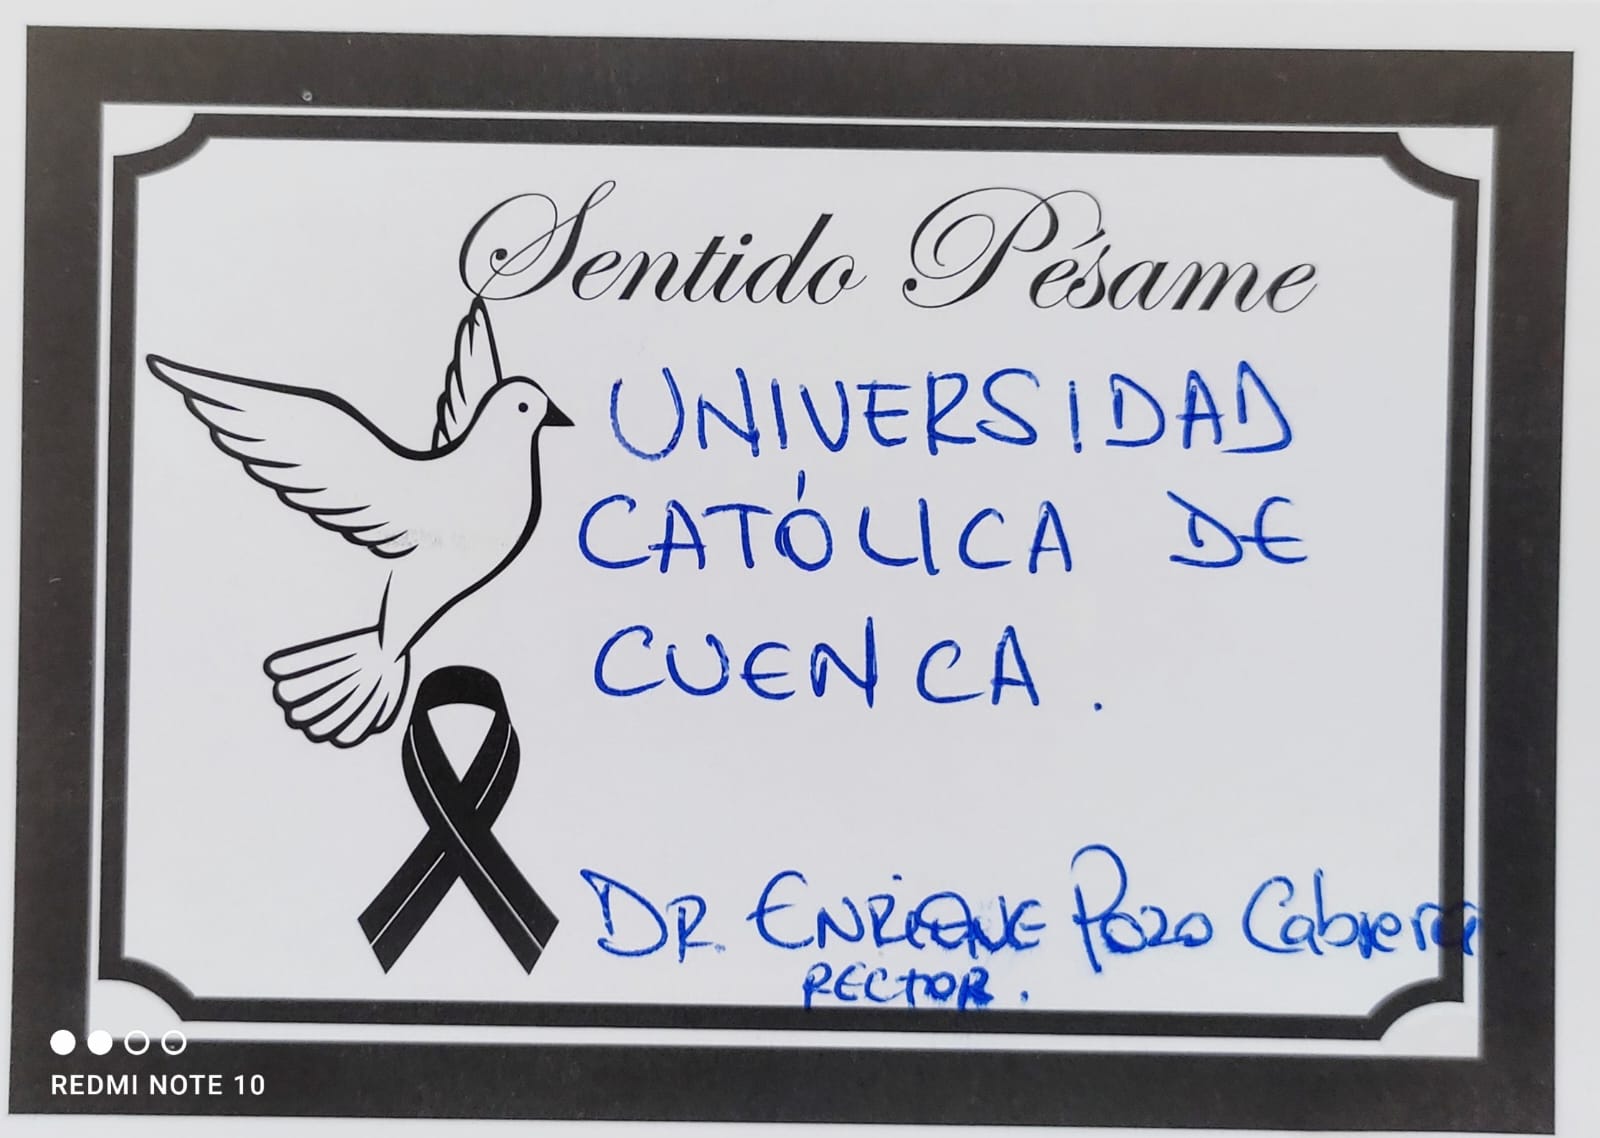 Sentido Pésame
UNIVERSIDAD
CATÓLICA DE
CUENCA.
DR. ENRIQUE POZO Cabrera
RECTOR.
REDMI NOTE 10